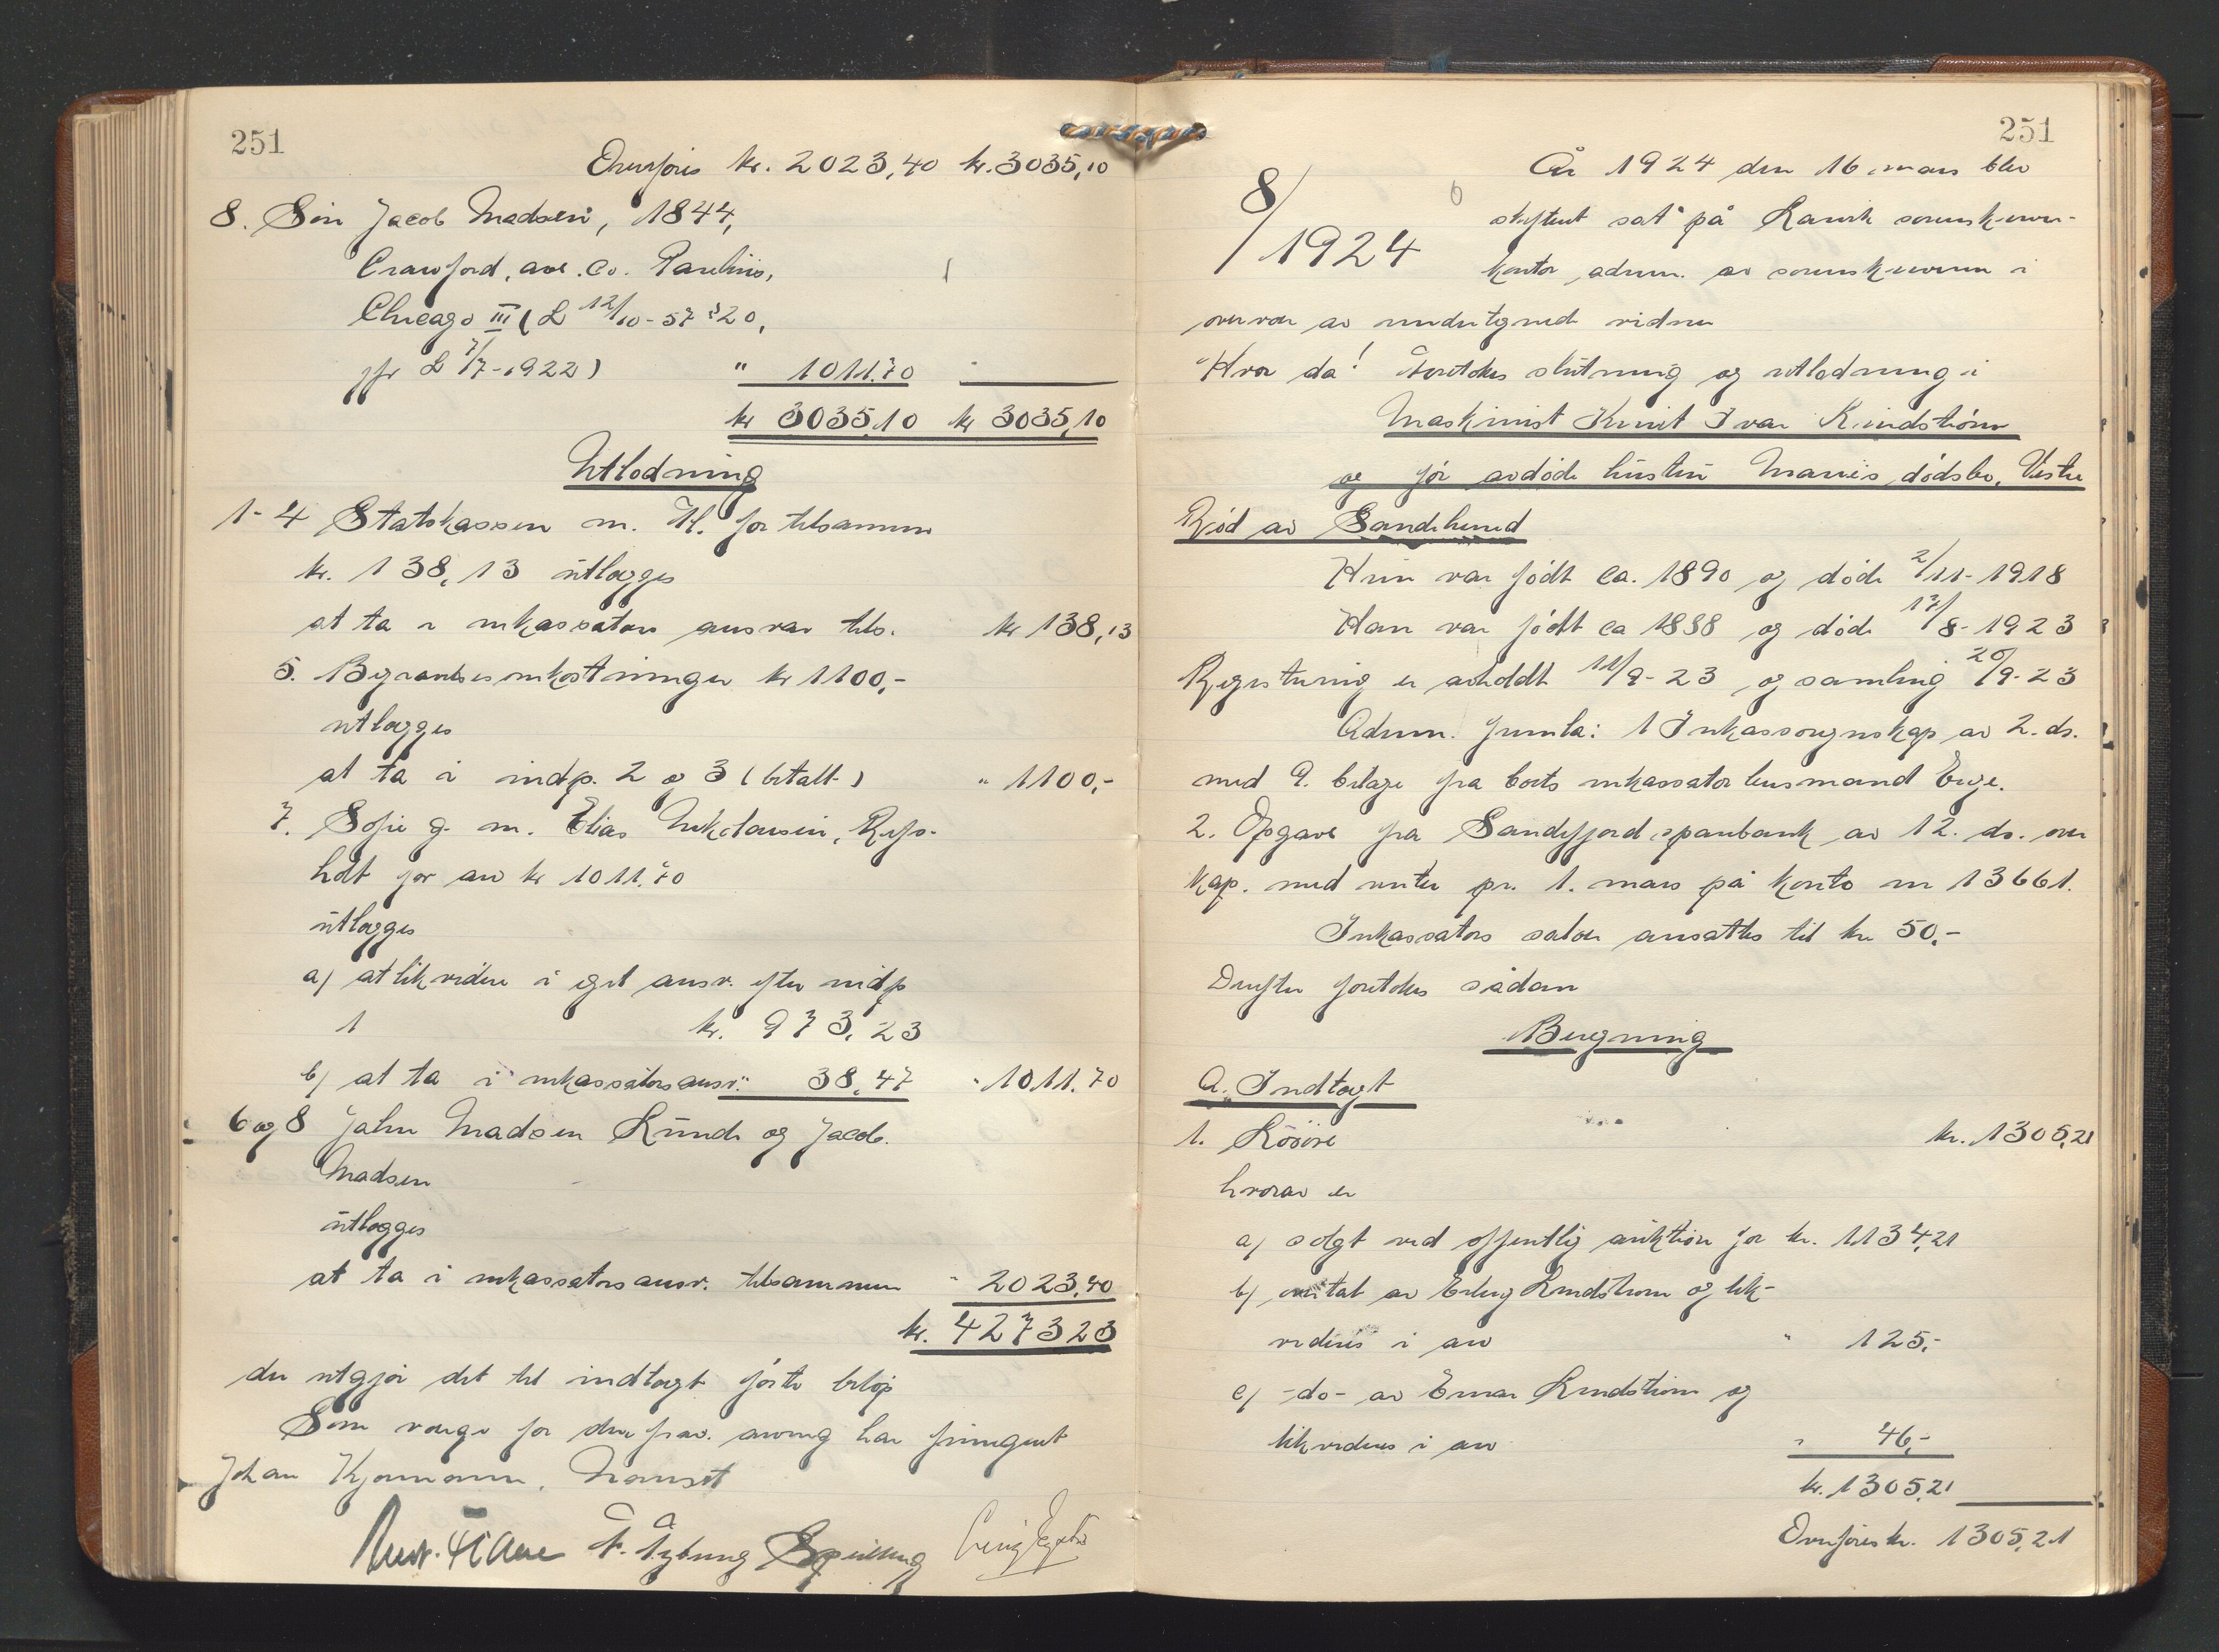 251
Overføres kr. 2023,40 kr. 3035,10
8. Søn Jacob Madsen, 1844,
Crawford, ave. Co.
Chicago III (L 12/10-57 20,
jfr L 7/7-1922) " 1011.70
kr 3035,10 kr 3035,10
Utlodning
1-4 Statskassen m. fl. for tilsammen
kr. 138,13 utlægges
at ta i inkassators ansvar tils. kr 138,13
5. Begravelsesomkostninger kr 1100,-
utlægges
at ta i indp. 2 og 3 (betalt) " 1100,-
7. Sofie g. m. Elias Nikolaisen,
holt for arv kr 1011.70
utlægges
a) at likvidere i eget ansv. efter indp
1 kr. 973,23
b) at ta i inkassators ansv. " 38,47 " 1011.70
6 og 8 John Madsen Lunde og Jacob
Madsen
utlægges
at ta i inkassators ansv. tilsammen " 2023,40
kr. 4273 23
der utgjør det til indtægt førte beløp
Som verge for den frav. arving har fungert
Johan
251
8/1924
År 1924 den 16. mars blev
skifteret sat på Larvik sorenskriver-
kontor, adm. av sorenskriveren i
overvær av undertegnede vidner
Hvor da! Foretokes slutning og utlodning i
Maskinist Knut Ivar Lindstrøm
og før avdøde hustru Maries dødsbo, Vestre
Rød av Sandeherred
Hun var født ca. 1890 og døde 2/11-1918
Han var født ca 1888 og døde 17/8-1923
Registrering er avholdt 11/9-23 og samling 20/9-23
Adm. fremla: 1 Inkassoregnskap av 2. ds.
med 9. bilage fra boets inkassator lensmand
2. Opgave fra Sandefjord sparebank av 12. ds. over
kap. med renter pr. 1. mars på konto nr 13661.
Inkassators salær ansattes til kr 50,-
Derefter foretokes sådan
Beregning
A. Indtægt
1. Løsøre kr. 1305,21
hvorav er
a) solgt ved offentlig auktion for kr. 1134,21
b) overtat av Erling Lindstrøm og lik-
videres i arv " 125,-
c) -do- av Einar Lindstrøm og
likvideres i arv " 46,-
kr. 1305,21
Overføres kr. 1305,21